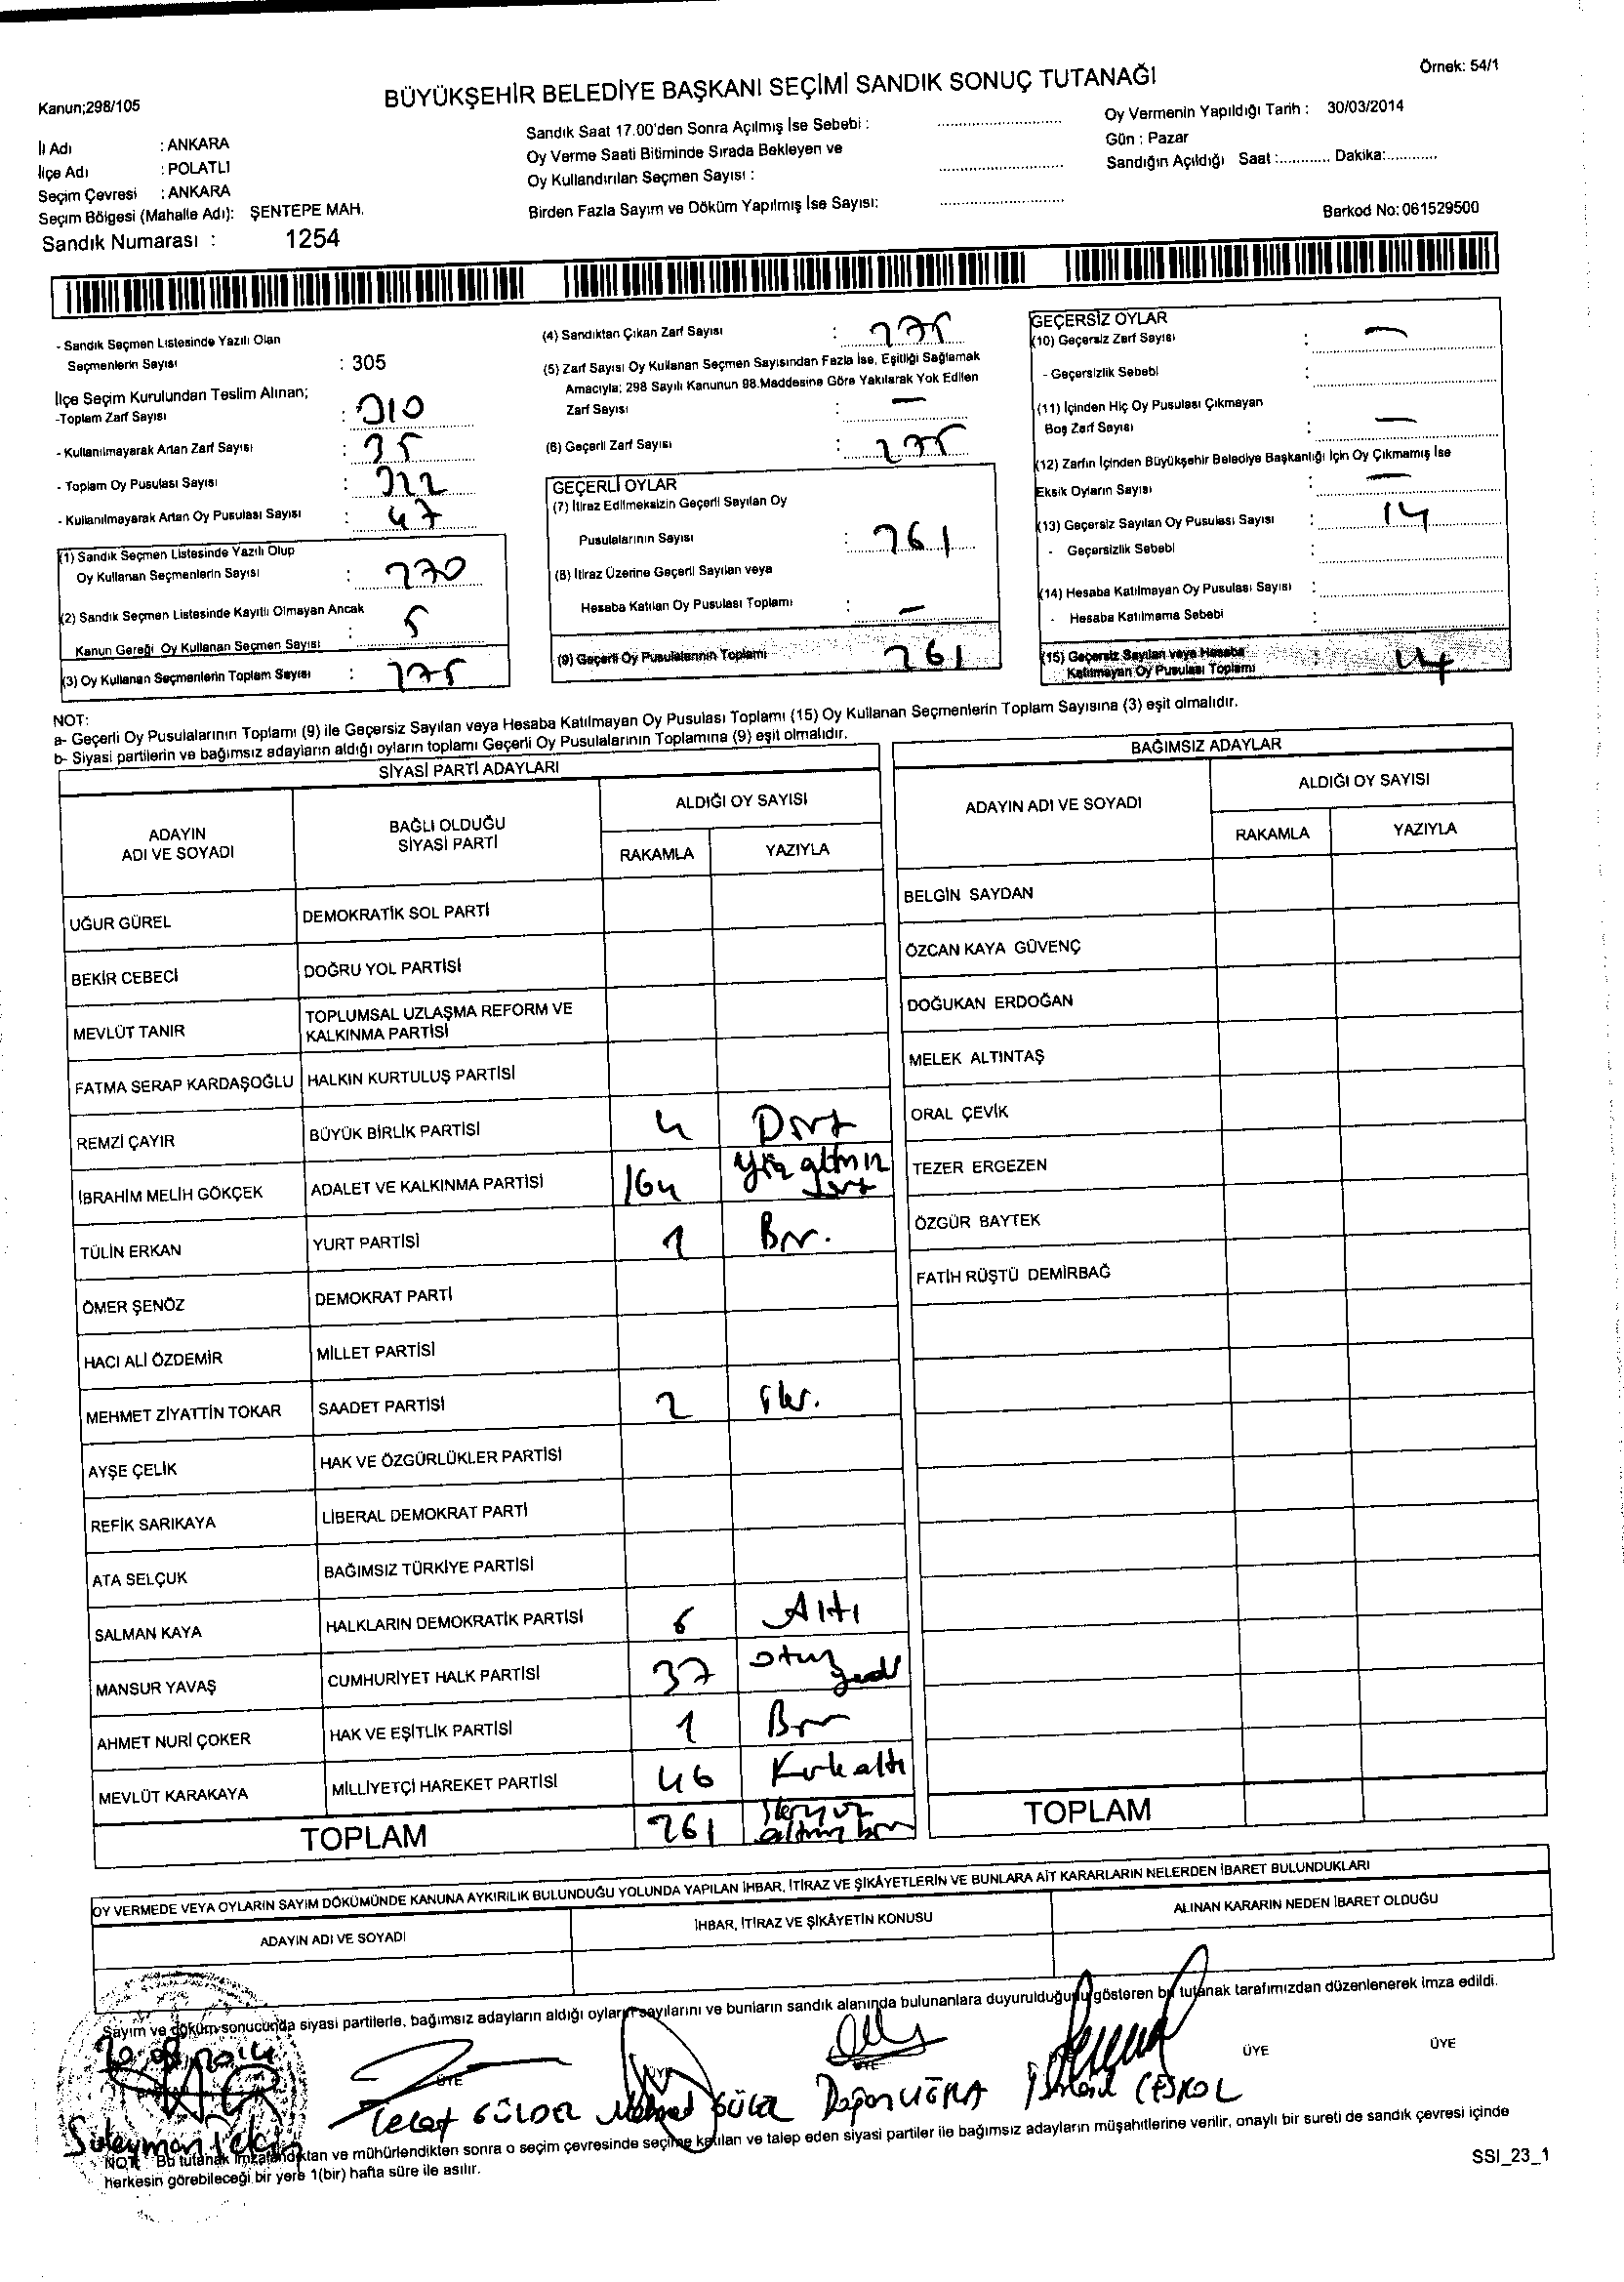 Örnek: 54/1
Kanun;298/105
BÜYÜKŞEHİR BELEDİYE BAŞKANI SEÇİMİ SANDIK SONUÇ TUTANAĞI
İl Adı : ANKARA
İlçe Adı : POLATLI
Seçim Çevresi : ANKARA
Seçim Bölgesi (Mahalle Adı): ŞENTEPE MAH.
Sandık Numarası : 1254
Sandık Saat 17.00'den Sonra Açılmış İse Sebebi :
Oy Verme Saati Bitiminde Sırada Bekleyen ve
Oy Kullandırılan Seçmen Sayısı :
Birden Fazla Sayım ve Döküm Yapılmış İse Sayısı:
Oy Vermenin Yapıldığı Tarih : 30/03/2014
Gün : Pazar
Sandığın Açıldığı Saat :............ Dakika:............
Barkod No: 061529500
- Sandık Seçmen Listesinde Yazılı Olan
Seçmenlerin Sayısı : 305
İlçe Seçim Kurulundan Teslim Alınan;
-Toplam Zarf Sayısı : 310
- Kullanılmayarak Artan Zarf Sayısı : 35
- Toplam Oy Pusulası Sayısı : 322
- Kullanılmayarak Artan Oy Pusulası Sayısı : 47
(1) Sandık Seçmen Listesinde Yazılı Olup
Oy Kullanan Seçmenlerin Sayısı : 270
(2) Sandık Seçmen Listesinde Kayıtlı Olmayan Ancak
Kanun Gereği Oy Kullanan Seçmen Sayısı : 5
(3) Oy Kullanan Seçmenlerin Toplam Sayısı : 275
(4) Sandıktan Çıkan Zarf Sayısı : 275
(5) Zarf Sayısı Oy Kullanan Seçmen Sayısından Fazla İse, Eşitliği Sağlamak
Amacıyla; 298 Sayılı Kanunun 98.Maddesine Göre Yakılarak Yok Edilen
Zarf Sayısı : —
(6) Geçerli Zarf Sayısı : 275
GEÇERLİ OYLAR
(7) İtiraz Edilmeksizin Geçerli Sayılan Oy
Pusulalarının Sayısı : 261
(8) İtiraz Üzerine Geçerli Sayılan veya
Hesaba Katılan Oy Pusulası Toplamı : —
(9) Geçerli Oy Pusulalarının Toplamı 261
GEÇERSİZ OYLAR
(10) Geçersiz Zarf Sayısı : —
- Geçersizlik Sebebi :
(11) İçinden Hiç Oy Pusulası Çıkmayan
Boş Zarf Sayısı : —
(12) Zarfın İçinden Büyükşehir Belediye Başkanlığı İçin Oy Çıkmamış İse
Eksik Oyların Sayısı : —
(13) Geçersiz Sayılan Oy Pusulası Sayısı : 14
- Geçersizlik Sebebi :
(14) Hesaba Katılmayan Oy Pusulası Sayısı :
- Hesaba Katılmama Sebebi :
(15) Geçersiz Sayılan veya Hesaba
Katılmayan Oy Pusulası Toplamı : 14
NOT:
a- Geçerli Oy Pusulalarının Toplamı (9) ile Geçersiz Sayılan veya Hesaba Katılmayan Oy Pusulası Toplamı (15) Oy Kullanan Seçmenlerin Toplam Sayısına (3) eşit olmalıdır.
b- Siyasi partilerin ve bağımsız adayların aldığı oyların toplamı Geçerli Oy Pusulalarının Toplamına (9) eşit olmalıdır.
SİYASİ PARTİ ADAYLARI
ADAYIN ADI VE SOYADI BAĞLI OLDUĞU SİYASİ PARTİ ALDIĞI OY SAYISI
RAKAMLA YAZIYLA
UĞUR GÜREL DEMOKRATİK SOL PARTİ
BEKİR CEBECİ DOĞRU YOL PARTİSİ
MEVLÜT TANIR TOPLUMSAL UZLAŞMA REFORM VE KALKINMA PARTİSİ
FATMA SERAP KARDAŞOĞLU HALKIN KURTULUŞ PARTİSİ
REMZİ ÇAYIR BÜYÜK BİRLİK PARTİSİ 4 Dört
İBRAHİM MELİH GÖKÇEK ADALET VE KALKINMA PARTİSİ 164 Yüz altmış dört
TÜLİN ERKAN YURT PARTİSİ 1 Bir.
ÖMER ŞENÖZ DEMOKRAT PARTİ
HACI ALİ ÖZDEMİR MİLLET PARTİSİ
MEHMET ZİYATTİN TOKAR SAADET PARTİSİ 2 İki.
AYŞE ÇELİK HAK VE ÖZGÜRLÜKLER PARTİSİ
REFİK SARIKAYA LİBERAL DEMOKRAT PARTİ
ATA SELÇUK BAĞIMSIZ TÜRKİYE PARTİSİ
SALMAN KAYA HALKLARIN DEMOKRATİK PARTİSİ 6 Altı
MANSUR YAVAŞ CUMHURİYET HALK PARTİSİ 37 otuz yedi
AHMET NURİ ÇOKER HAK VE EŞİTLİK PARTİSİ 1 Bir
MEVLÜT KARAKAYA MİLLİYETÇİ HAREKET PARTİSİ 46 Kırk altı
TOPLAM 261 İkiyüz altmış bir
BAĞIMSIZ ADAYLAR
ADAYIN ADI VE SOYADI ALDIĞI OY SAYISI
RAKAMLA YAZIYLA
BELGİN SAYDAN
ÖZCAN KAYA GÜVENÇ
DOĞUKAN ERDOĞAN
MELEK ALTINTAŞ
ORAL ÇEVİK
TEZER ERGEZEN
ÖZGÜR BAYTEK
FATİH RÜŞTÜ DEMİRBAĞ
TOPLAM
OY VERMEDE VEYA OYLARIN SAYIM DÖKÜMÜNDE KANUNA AYKIRILIK BULUNDUĞU YOLUNDA YAPILAN İHBAR, İTİRAZ VE ŞİKÂYETLERİN VE BUNLARA AİT KARARLARIN NELERDEN İBARET BULUNDUKLARI
ADAYIN ADI VE SOYADI İHBAR, İTİRAZ VE ŞİKÂYETİN KONUSU ALINAN KARARIN NEDEN İBARET OLDUĞU
Sayım ve döküm sonucunda siyasi partilerle, bağımsız adayların aldığı oyların sayılarını ve bunların sandık alanında bulunanlara duyurulduğunu gösteren bu tutanak tarafımızdan düzenlenerek imza edildi.
ÜYE ÜYE ÜYE ÜYE ÜYE
Süleyman Tekin Mehmet
NOT: Bu tutanak imzalandıktan ve mühürlendikten sonra o seçim çevresinde seçime katılan ve talep eden siyasi partiler ile bağımsız adayların müşahitlerine verilir, onaylı bir sureti de sandık çevresi içinde
herkesin görebileceği bir yere 1(bir) hafta süre ile asılır.
SSI_23_1